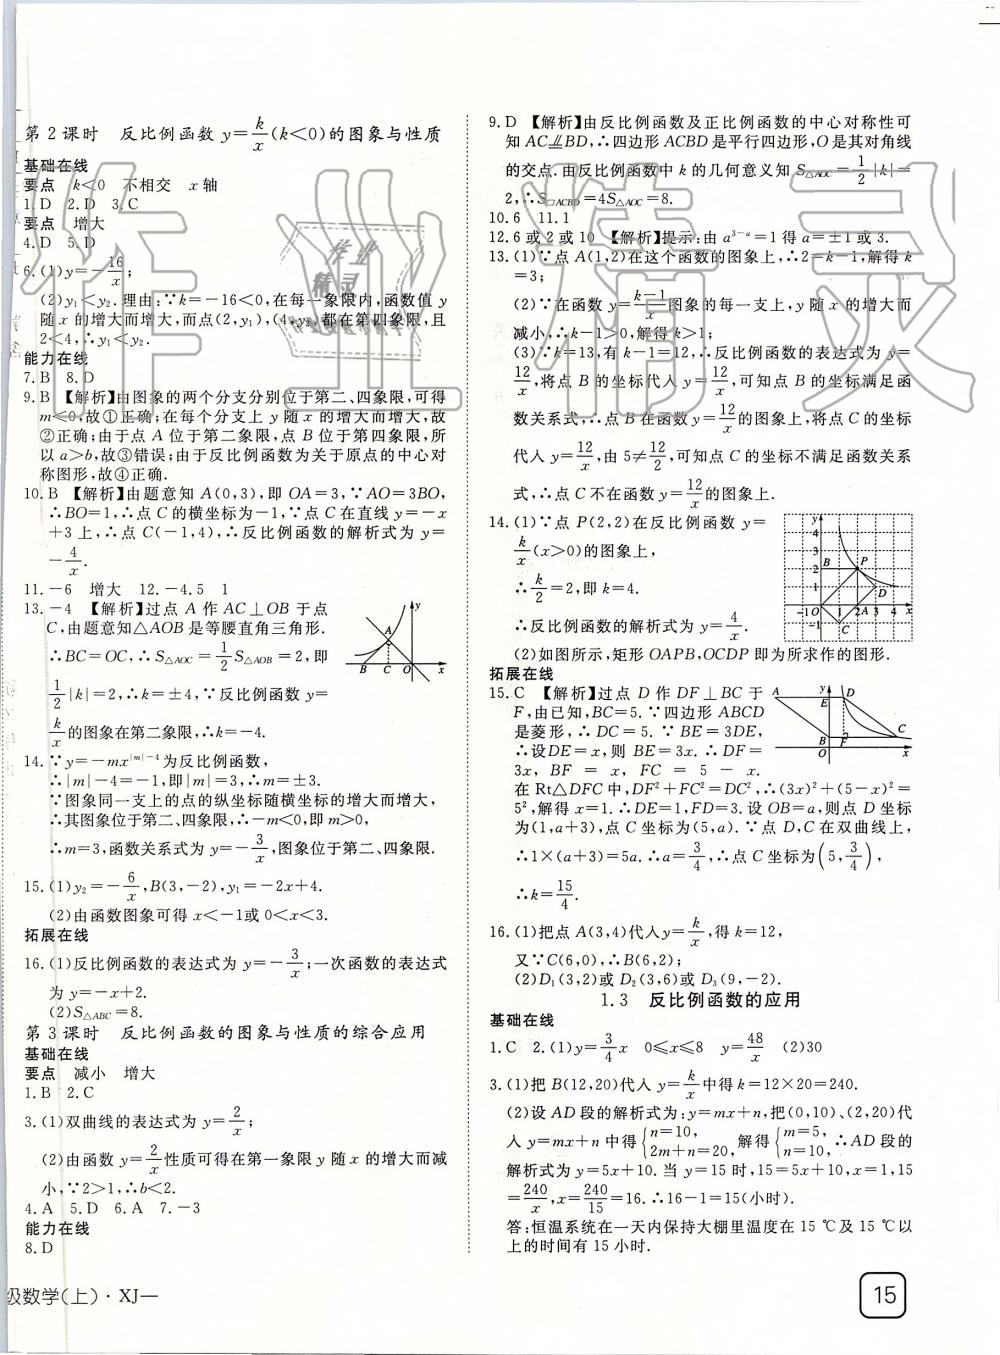 第2课时 反比例函数 y=k/x(k<0)的图象与性质
基础在线
要点 k<0 不相交 x轴
1.D 2.D 3.C
要点 增大
4.D 5.D
6.(1)y=-16/x;
(2)y₁<y₂.理由:∵k=-16<0,在每一象限内,函数值 y
随 x 的增大而增大,而点(2,y₁),(4,y₂)都在第四象限,且
2<4,∴y₁<y₂.
能力在线
7.B 8.D
9.B 【解析】由图象的两个分支分别位于第二、四象限,可得
m<0,故①正确;在每个分支上 y 随 x 的增大而增大,故
②正确;由于点 A 位于第二象限,点 B 位于第四象限,所
以 a>b,故③错误;由于反比例函数为关于原点的中心对
称图形,故④正确.
10.B 【解析】由题意知 A(0,3),即 OA=3,∵AO=3BO,
∴BO=1,∴点 C 的横坐标为-1,∵点 C 在直线 y=-x
+3上,∴点 C(-1,4),∴反比例函数的解析式为 y=
-4/x.
11.-6 增大 12.-4.5 1
13.-4 【解析】过点 A 作 AC⊥OB 于点
C,由题意知△AOB 是等腰直角三角形.
∴BC=OC,∴S△AOC=1/2S△AOB=2,即
1/2|k|=2,∴k=±4,∵反比例函数 y=
k/x的图象在第二象限,∴k=-4.
y
A
B C O x
14.∵y=-mx^|m|-4为反比例函数,
∴|m|-4=-1,即|m|=3,∴m=±3.
∵图象同一支上的点的纵坐标随横坐标的增大而增大,
∴其图象位于第二、四象限,∴-m<0,即 m>0,
∴m=3,函数关系式为 y=-3/x,图象位于第二、四象限.
15.(1)y₂=-6/x,B(3,-2),y₁=-2x+4.
(2)由函数图象可得 x<-1或0<x<3.
拓展在线
16.(1)反比例函数的表达式为 y=-3/x;一次函数的表达式
为 y=-x+2.
(2)S△ABC=8.
第3课时 反比例函数的图象与性质的综合应用
基础在线
要点 减小 增大
1.B 2.C
3.(1)双曲线的表达式为 y=2/x;
(2)由函数 y=2/x性质可得在第一象限 y 随 x 的增大而减
小,∵2>1,∴b<2.
4.A 5.D 6.A 7.-3
能力在线
8.D
级数学(上)·XJ—
9.D 【解析】由反比例函数及正比例函数的中心对称性可
知 AC⫽BD,∴四边形 ACBD 是平行四边形,O 是其对角线
的交点.由反比例函数中 k 的几何意义知 S△AOC=1/2|k|=
2,∴S□ACBD=4S△AOC=8.
10.6 11.1
12.6 或 2 或 10 【解析】提示:由 a³⁻ᵃ=1 得 a=±1 或 3.
13.(1)∵点 A(1,2)在这个函数的图象上,∴2=k-1,解得 k
=3;
(2)∵在函数 y=k-1/x图象的每一支上,y 随 x 的增大而
减小,∴k-1>0,解得 k>1;
(3)∵k=13,有 k-1=12,∴反比例函数的表达式为 y=
12/x,将点 B 的坐标代入 y=12/x,可知点 B 的坐标满足函
数关系式,∴点 B 在函数 y=12/x的图象上,将点 C 的坐标
代入 y=12/x,由 5≠12/2,可知点 C 的坐标不满足函数关系
式,∴点 C 不在函数 y=12/x的图象上.
14.(1)∵点 P(2,2)在反比例函数 y=
k/x(x>0)的图象上,
∴k/2=2,即 k=4.
∴反比例函数的解析式为 y=4/x.
(2)如图所示,矩形 OAPB,OCDP 即为所求作的图形.
y
4
3
2 B P
1 D
-1 O 1 2A 3 4 x
-1 C
拓展在线
15.C 【解析】过点 D 作 DF⊥BC 于
F,由已知,BC=5.∵四边形 ABCD
是菱形,∴DC=5.∵BE=3DE,
∴设DE=x,则 BE=3x.∴DF=
3x, BF = x, FC = 5 - x.
在 Rt△DFC 中,DF²+FC²=DC²,∴(3x)²+(5-x)²=
5²,解得 x=1.∴DE=1,FD=3.设 OB=a,则点 D 坐标
为(1,a+3),点 C 坐标为(5,a).∵点 D,C 在双曲线上,
∴1×(a+3)=5a.∴a=3/4,∴点 C 坐标为(5,3/4),
∴k=15/4.
A y D
E
B F C
O x
16.(1)把点 A(3,4)代入y=k/x,得 k=12,
又∵C(6,0),∴B(6,2);
(2)D₁(3,2)或 D₂(3,6)或 D₃(9,-2).
1.3 反比例函数的应用
基础在线
1.C 2.(1)y=3/4x 0≤x≤8 y=48/x (2)30
3.(1)把 B(12,20)代入 y=k/x中得 k=12×20=240.
(2)设 AD 段的解析式为:y=mx+n,把(0,10)、(2,20)代
入 y=mx+n 中得{n=10, 2m+n=20, 解得{m=5, n=10, ∴AD 段的
解析式为 y=5x+10.当 y=15 时,15=5x+10,x=1,15
=240/x,x=240/15=16.∴16-1=15(小时).
答:恒温系统在一天内保持大棚里温度在 15 ℃及 15 ℃以
上的时间有 15 小时.
15
作业精灵
作业
精灵